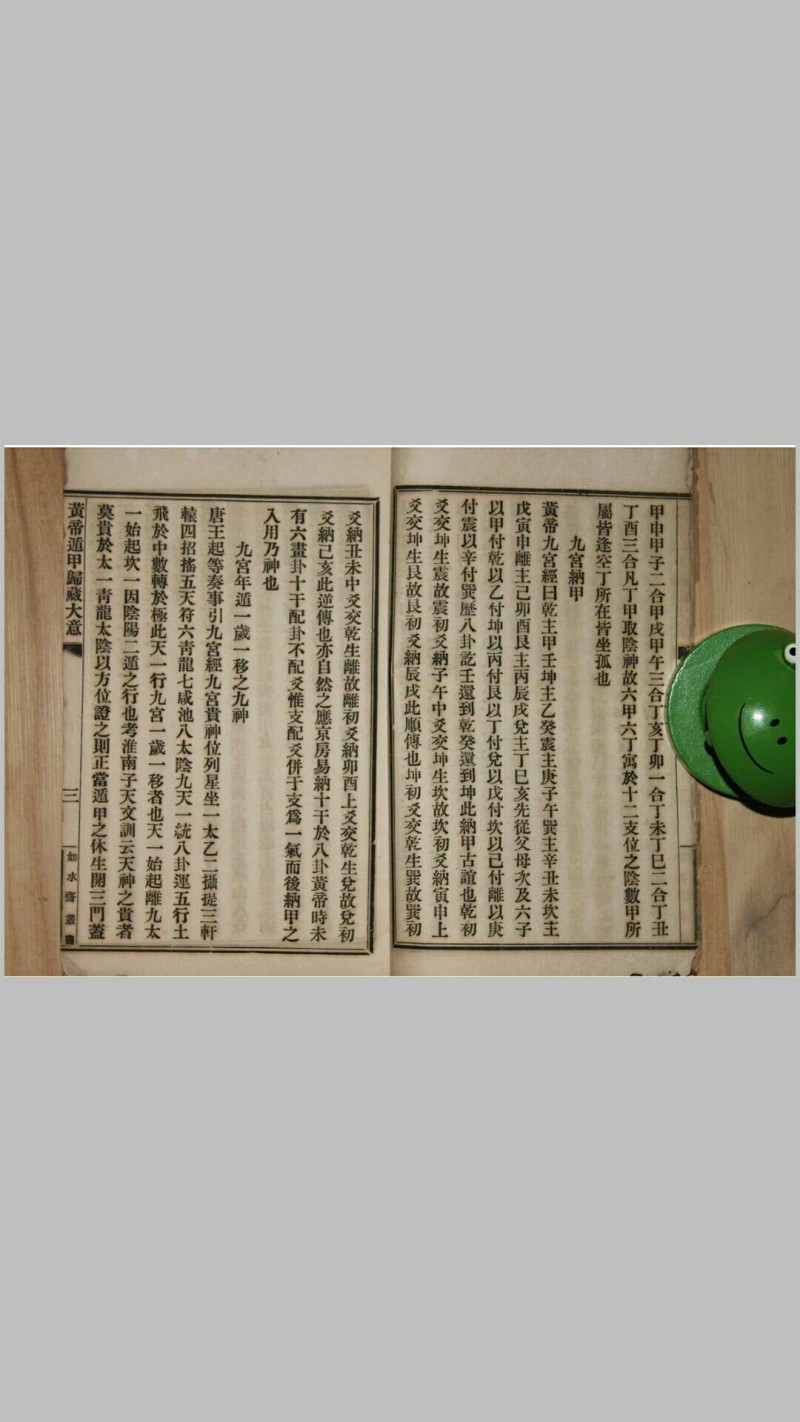 甲申甲子二合甲戌甲午三合丁亥丁卯一合丁未丁巳二合丁丑
丁酉三合凡丁甲取陰神故六甲六丁寓於十二支位之陰數甲所
屬皆逢空丁所在皆坐孤也
九宮納甲
黃帝九宮經曰乾主甲壬坤主乙癸震主庚子午巽主辛丑未坎主
戊寅申離主己卯酉艮主丙辰戌兌主丁巳亥先從父母次及六子
以甲付乾以乙付坤以丙付艮以丁付兌以戊付坎以己付離以庚
付震以辛付巽歷八卦訖壬還到乾癸還到坤此納甲古誼也乾初
爻交坤生震故震初爻納子午中爻交坤生坎故坎初爻納寅申上
爻交坤生艮故艮初爻納辰戌此順傳也坤初爻交乾生巽故巽初
爻納丑未中爻交乾生離故離初爻納卯酉上爻交乾生兌故兌初
爻納己亥此逆傳也亦自然之應京房易納十干於八卦黃帝時未
有六畫卦十干配卦不配爻惟支配爻併于支爲一氣而後納甲之
入用乃神也
九宮年遁一歲一移之九神
唐王起等奏事引九宮經九宮貴神位列星坐一太乙二攝提三軒
轅四招搖五天符六靑龍七咸池八太陰九天一統八卦運五行土
飛於中數轉於極此天一行九宮一歲一移者也天一始起離九太
一始起坎一因陰陽二遁之行也考淮南子天文訓云天神之貴者
莫貴於太一靑龍太陰以方位證之則正當遁甲之休生開三門蓋
黃帝遁甲歸藏大意
三
如水齋叢書